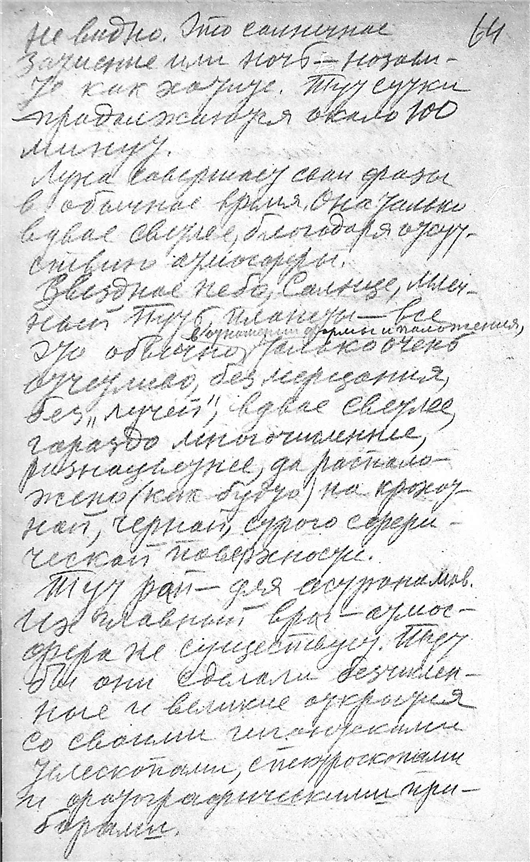 64
не видно. Это солнечное
затмение или ночь – назови-
те как хотите. Тут сутки
продолжаются около 100
минут.
Луна совершает свои фазы
в обычное время. Она только
вдвое светлее, благодаря отсут-
ствию атмосферы.
Звездное небо, Солнце, Млеч-
ный Путь, планеты – все
в отношении формы и положения,
это обычно, только очень
отчетливо, без мерцания,
без „лучей“, вдвое светлее,
гораздо многочисленнее,
разноцветнее, да располо-
жено (как будто) на крохот-
ной, черной, строго сфери-
ческой поверхности.
Тут рай – для астрономов.
Их главный враг – атмос-
фера не существует. Тут
бы они сделали безчислен-
ные и великие открытия
со своими гигантскими
телескопами, спектроскопами
и фотографическими при-
борами.